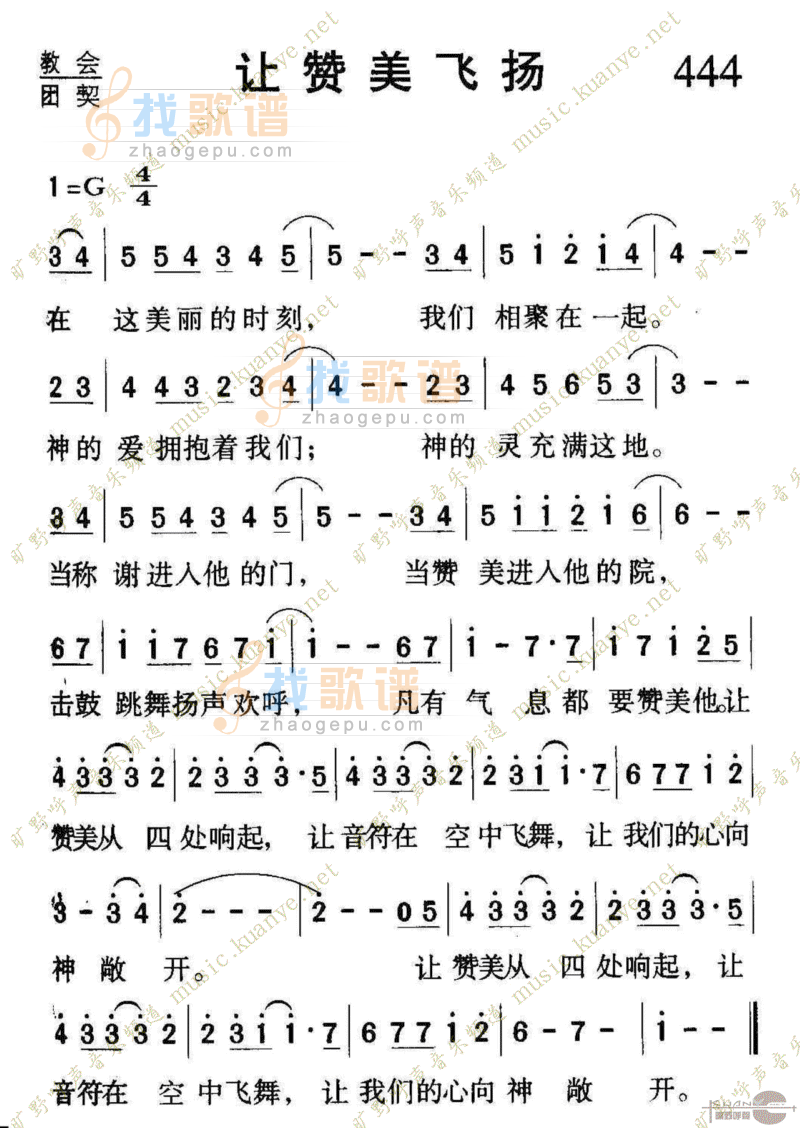 教会
团契
让赞美飞扬 444
1=G 4/4
3 4 | 5 5 4 3 4 5 | 5 - - 3 4 | 5 1 2 1 4 | 4 - -
在 这美丽的时刻， 我们 相聚在一起。
2 3 | 4 4 3 2 3 4 | 4 - - 2 3 | 4 5 6 5 3 | 3 - -
神的 爱拥抱着我们； 神的 灵充满这地。
3 4 | 5 5 4 3 4 5 | 5 - - 3 4 | 5 1 1 2 1 6 | 6 - -
当称 谢进入他的门， 当赞 美进入他的院，
6 7 | 1 1 7 6 7 1 | 1 - - 6 7 | 1 - 7 · 7 | 1 7 1 2 5
击鼓 跳舞扬声欢呼， 凡有 气 息都 要赞美他。让
4 3 3 3 2 | 2 3 3 3 · 5 | 4 3 3 3 2 | 2 3 1 1 · 7 | 6 7 7 1 2
赞美从 四处响起，让音符在 空中飞舞，让我们的心向
3 - 3 4 | 2 - - - | 2 - - 0 5 | 4 3 3 3 2 | 2 3 3 3 · 5
神 敞 开。 让赞美从 四处响起，让
4 3 3 3 2 | 2 3 1 1 · 7 | 6 7 7 1 2 | 6 - 7 - | 1 - - ‖
音符在 空中飞舞，让我们的心向神 敞 开。
找歌谱
zhaogepu.com
旷野呼声音乐频道 music.kuanye.net